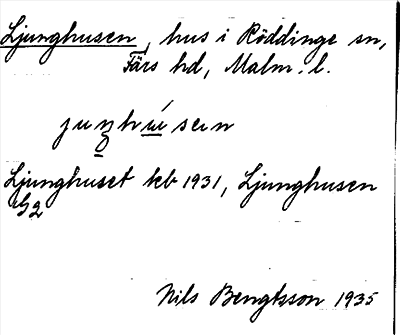 Ljunghusen, hus i Röddinge sn,
Färs hd, Malm. l.
Ljunghuset kb 1931, Ljunghusen
Nils Bengtsson 1935